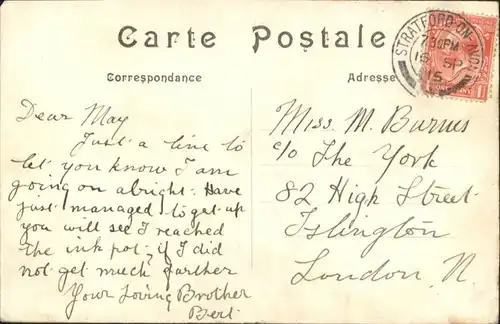 Carte Postale
Correspondance
Adresse
STRATFORD-ON-AVON
7 30PM
16 SP
15
Dear May
Just a line to
let you know I am
going on alright. Have
just managed to get up
you will see I reached
the ink pot, if I did
not get much farther
Your loving Brother
Bert.
Miss. M. Burns
c/o The York
82 High Street
Islington
London. N.